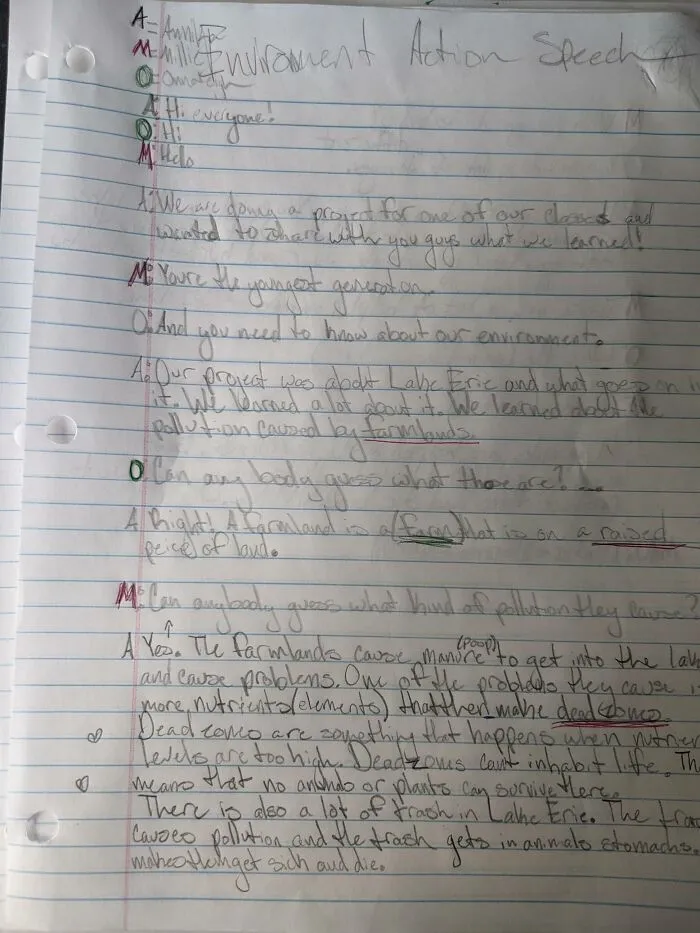 A = Annika
M = Millie
O =
Enviroment Action Speech
A: Hi everyone!
O: Hi
M: Hello
A: We are doing a project for one of our classes and
wanted to share with you guys what we learned!
M: Youre the youngest generation.
O: And you need to know about our environment.
A: Our project was about Lake Erie and what goes on in
it. We learned a lot about it. We learned about the
pollution caused by farmlands.
O: Can any body guess what those are?
A Right! A farmland is a (farm) that is on a raised
peice of land.
M: Can anybody guess what kind of pollution they cause?
A Yes. The farmlands cause manure (poop) to get into the lake
and cause problems. One of the problems they cause is
more nutrients (elements) that then make dead zones.
Dead zones are something that happens when nutrien
levels are too high. Dead zones cant inhabit life. Th
means that no animals or plants can survive there.
There is also a lot of trash in Lake Erie. The tras
causes pollution and the trash gets in animals stomachs.
makes them get sick and die.